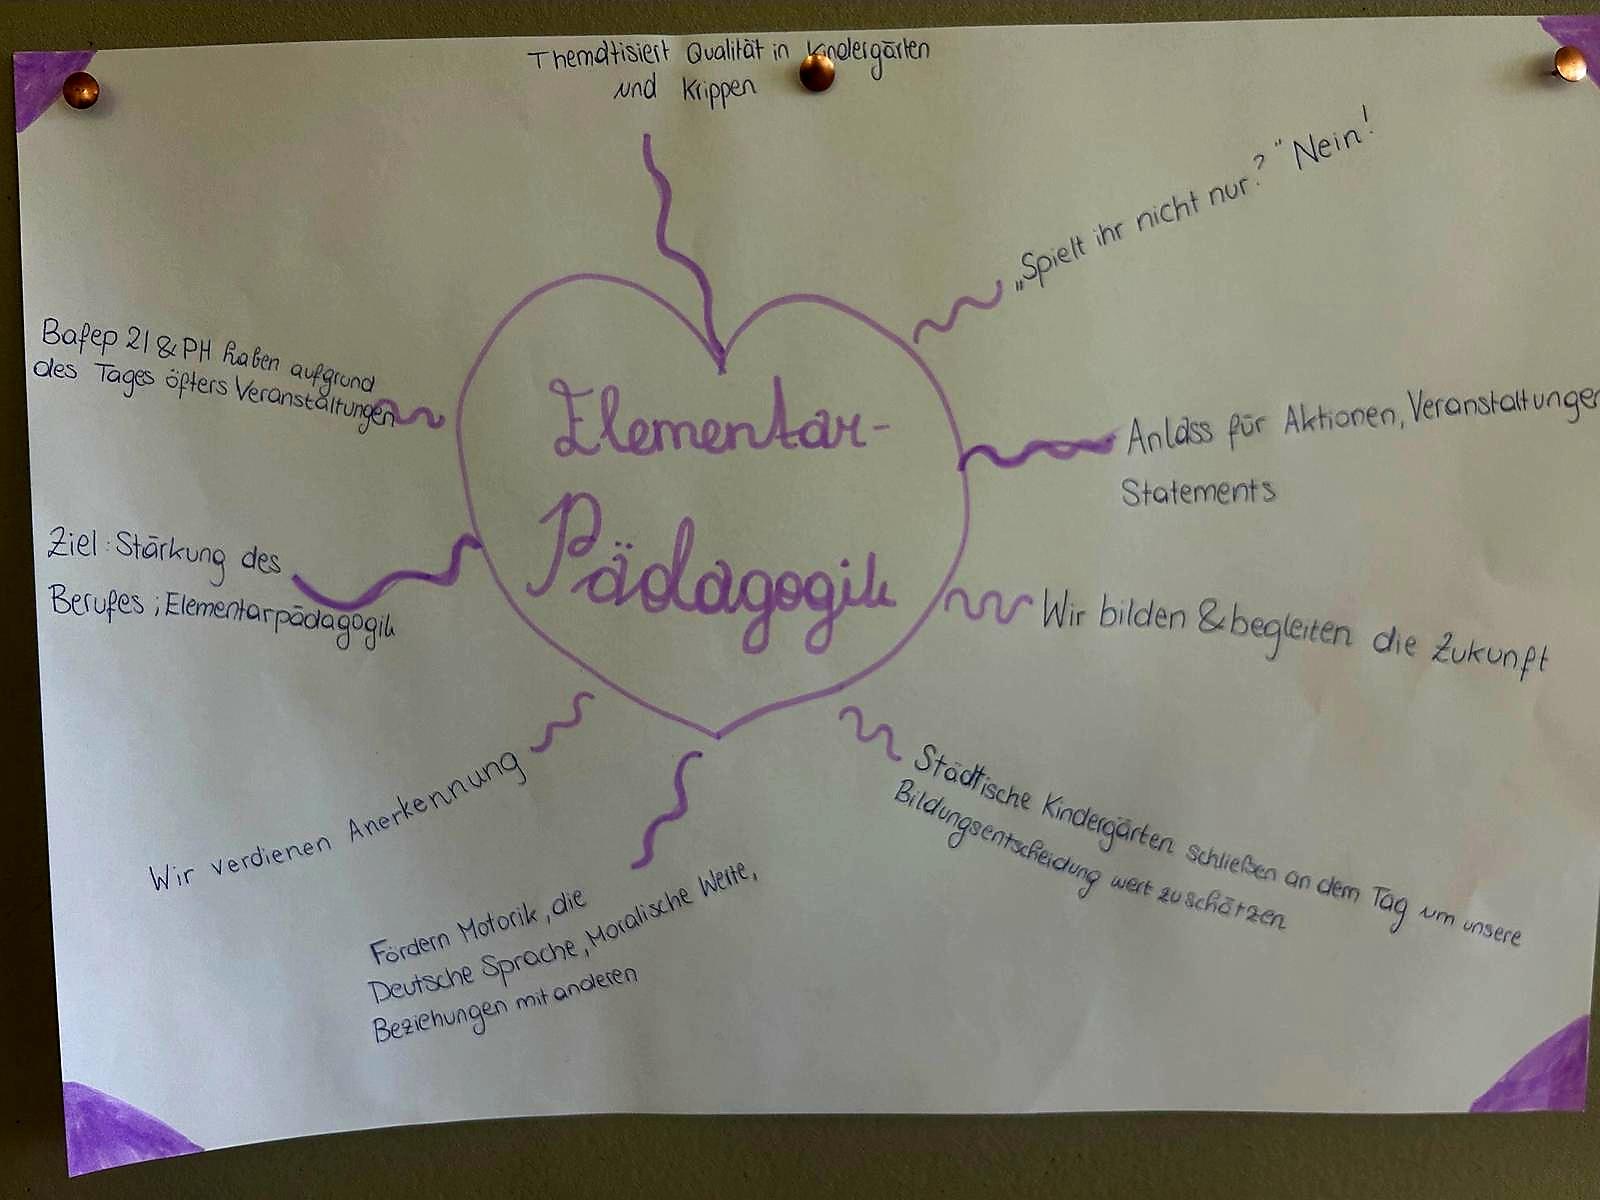 Thematisiert Qualität in Kindergärten
und Krippen
„Spielt ihr nicht nur?" Nein!
Bafep 21 & PH haben aufgrund
des Tages öfters Veranstaltungen
Elementar-
Pädagogik
Anlass für Aktionen, Veranstaltungen
Statements
Ziel: Stärkung des
Berufes ; Elementarpädagogik
Wir bilden & begleiten die Zukunft
Wir verdienen Anerkennung
Städtische Kindergärten schließen an dem Tag um unsere
Bildungsentscheidung wert zu schätzen
Fördern Motorik, die
Deutsche Sprache, Moralische Werte,
Beziehungen mit anderen